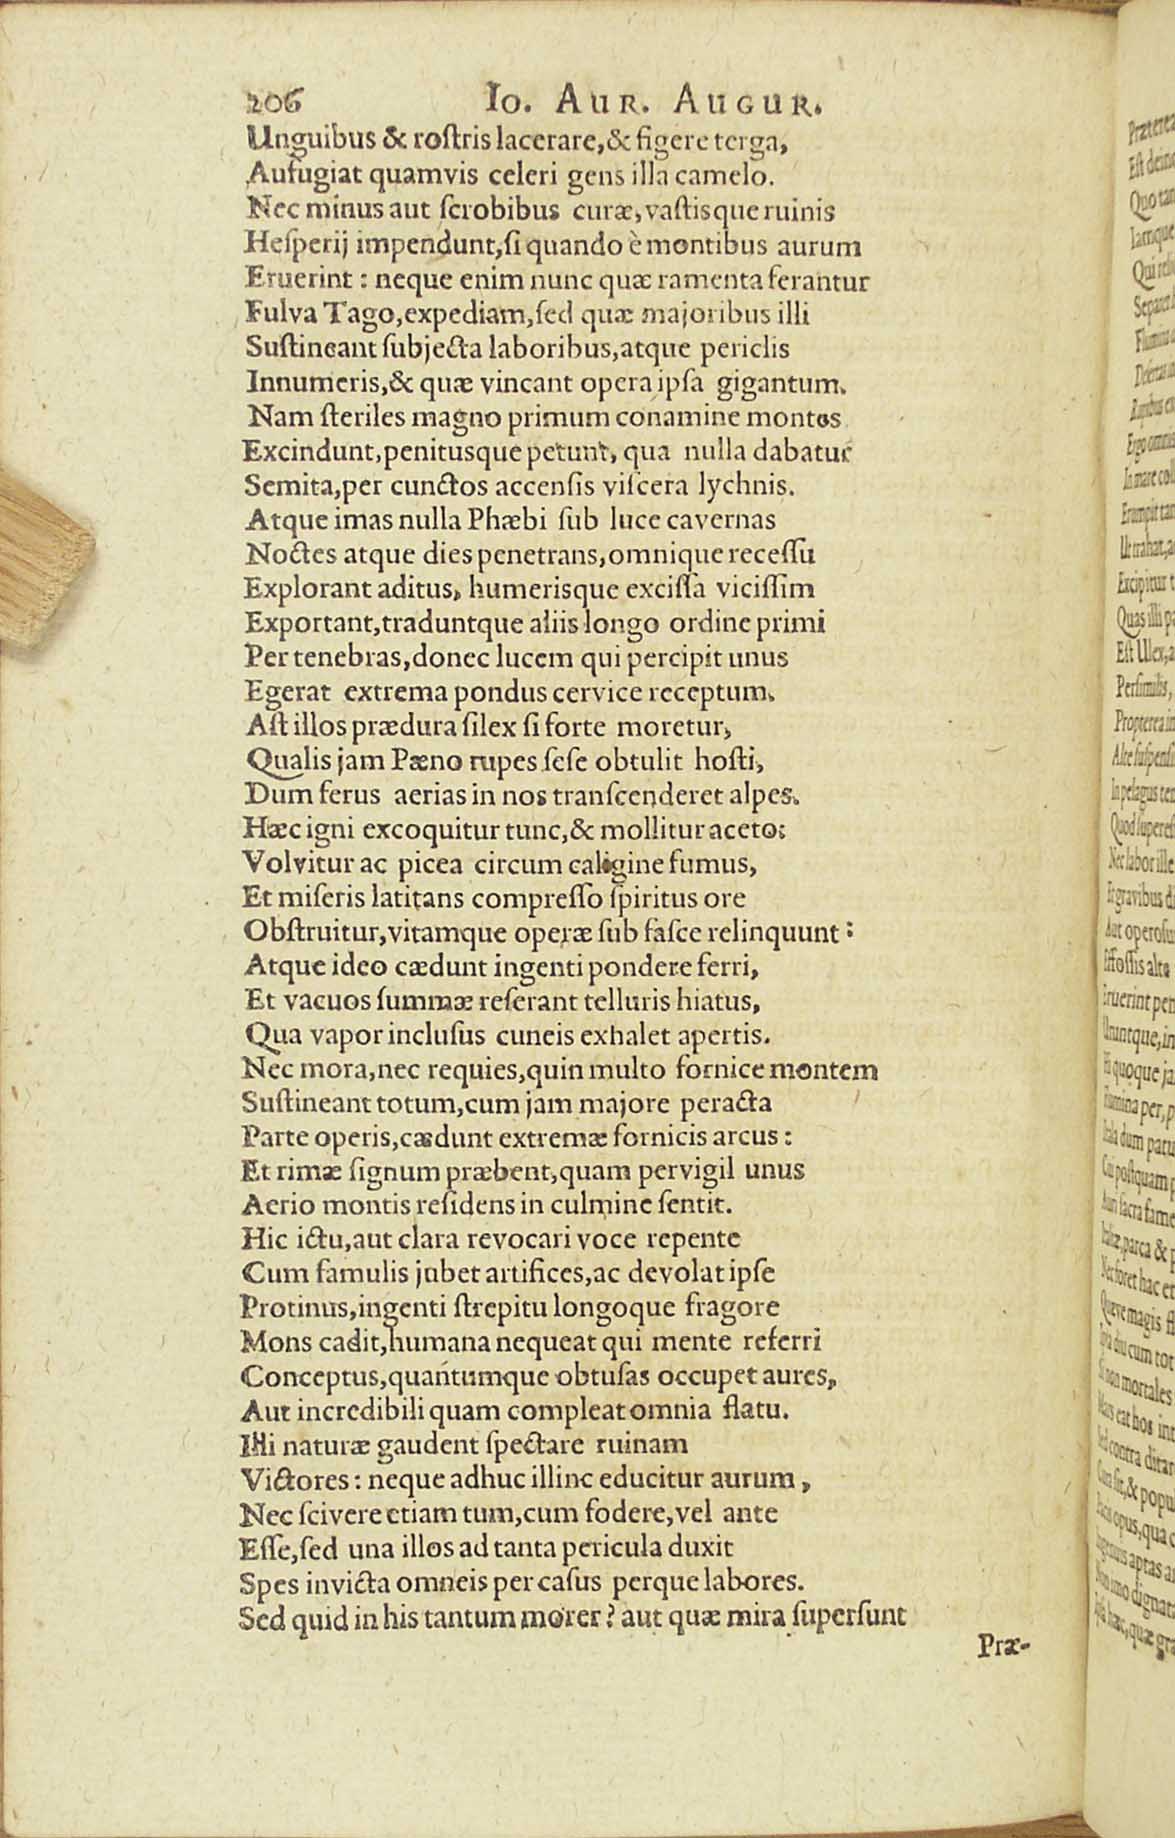 206 Io. Aur. Augur.
Unguibus & roſtris lacerare,& figere terga,
Aufugiat quamvis celeri gens illa camelo.
Nec minus aut ſcrobibus curæ, vaſtisque ruinis
Heſperij impendunt,ſi quando è montibus aurum
Eruerint : neque enim nunc quæ ramenta ferantur
Fulva Tago,expediam,ſed quæ majoribus illi
Suſtineant ſubjecta laboribus,atque periclis
Innumeris,& quæ vincant opera ipſa gigantum.
Nam ſteriles magno primum conamine montes
Excindunt,penitusque petunt, qua nulla dabatur
Semita,per cunctos accenſis viſcera lychnis.
Atque imas nulla Phæbi ſub luce cavernas
Noctes atque dies penetrans,omnique receſſu
Explorant aditus, humerisque exciſſa viciſſim
Exportant,traduntque aliis longo ordine primi
Per tenebras,donec lucem qui percipit unus
Egerat extrema pondus cervice receptum.
Aſt illos prædura ſilex ſi forte moretur,
Qualis jam Pæno rupes ſeſe obtulit hoſti,
Dum ferus aerias in nos tranſcenderet alpes.
Hæc igni excoquitur tunc,& mollitur aceto:
Volvitur ac picea circum caligine fumus,
Et miſeris latitans compreſſo ſpiritus ore
Obſtruitur,vitamque operæ ſub faſce relinquunt :
Atque ideo cædunt ingenti pondere ferri,
Et vacuos ſummæ reſerant telluris hiatus,
Qua vapor incluſus cuneis exhalet apertis.
Nec mora,nec requies,quin multo fornice montem
Suſtineant totum,cum jam majore peracta
Parte operis,cædunt extremæ fornicis arcus :
Et rimæ ſignum præbent,quam pervigil unus
Aerio montis reſidens in culmine ſentit.
Hic ictu,aut clara revocari voce repente
Cum famulis jubet artifices,ac devolat ipſe
Protinus,ingenti ſtrepitu longoque fragore
Mons cadit,humana nequeat qui mente referri
Conceptus,quantumque obtuſas occupet aures,
Aut incredibili quam compleat omnia flatu.
Illi naturæ gaudent ſpectare ruinam
Victores : neque adhuc illinc educitur aurum,
Nec ſcivere etiam tum,cum fodere,vel ante
Eſſe,ſed una illos ad tanta pericula duxit
Spes invicta omneis per caſus perque labores.
Sed quid in his tantum morer? aut quæ mira ſuperſunt
Præ-